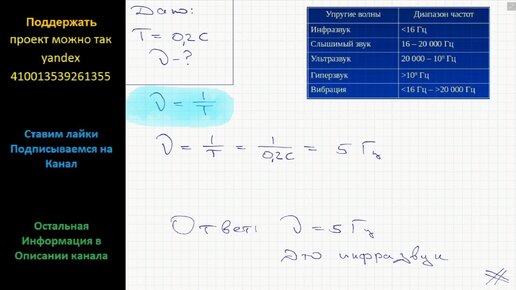 Поддержать
проект можно так
yandex
410013539261355
Ставим лайки
Подписываемся на
Канал
Остальная
Информация в
Описании канала
Дано:
T = 0,2 с
ν - ?
ν = 1/T
ν = 1/T = 1/0,2с = 5 Гц
Ответ: ν = 5 Гц
это инфразвук
Упругие волны Диапазон частот
Инфразвук <16 Гц
Слышимый звук 16 – 20 000 Гц
Ультразвук 20 000 – 10⁹ Гц
Гиперзвук >10⁹ Гц
Вибрация <16 Гц – >20 000 Гц